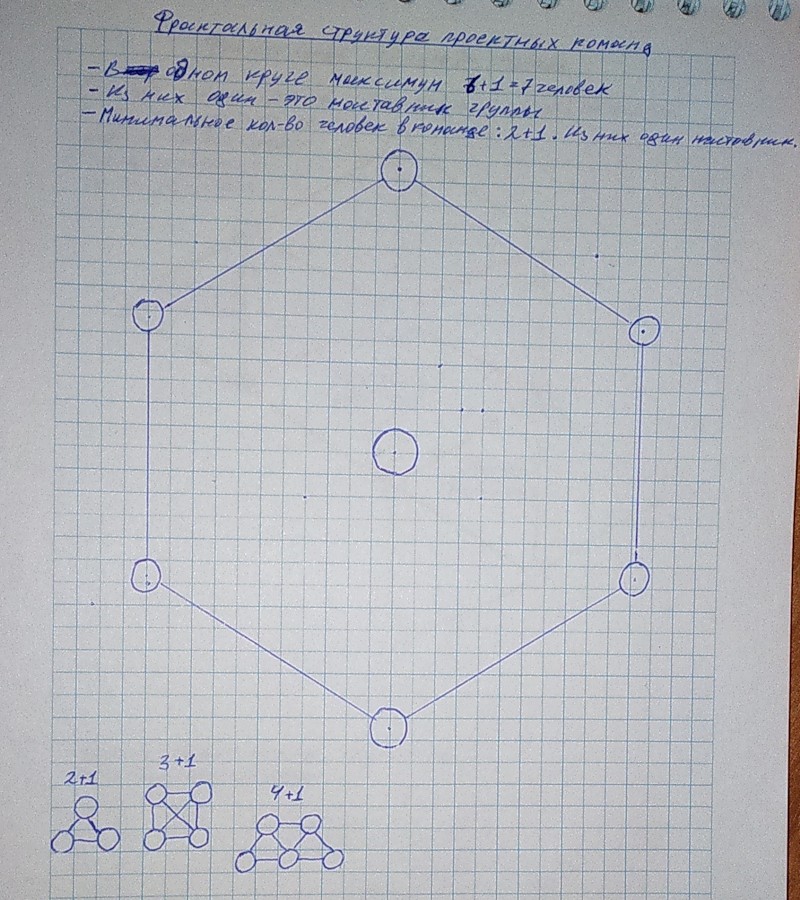 Фрактальная структура проектных команд
- В одном круге максимум 6+1=7 человек
- Из них один - это наставник группы
- Минимальное кол-во человек в команде: 2+1. Из них один наставник.
2+1
3+1
4+1